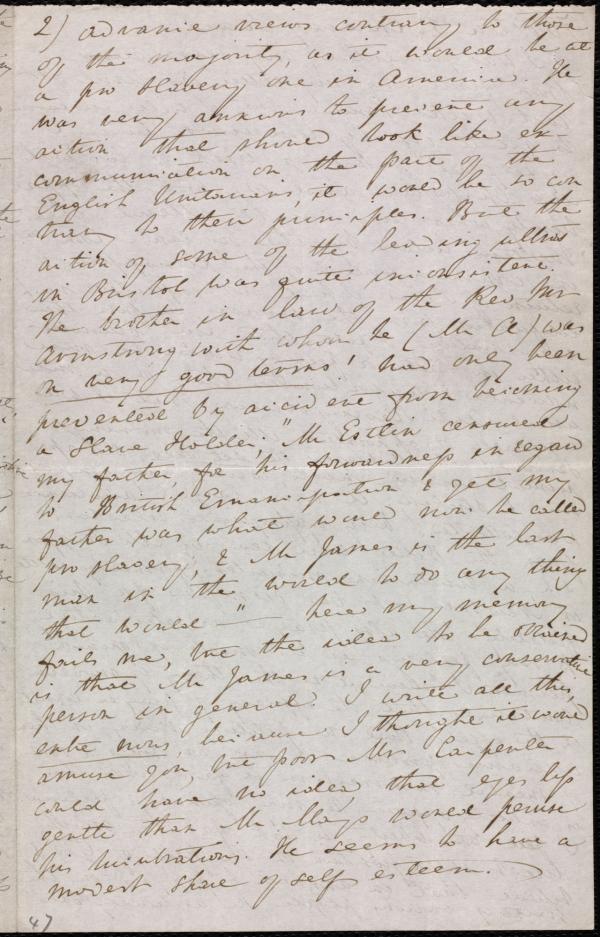 2) advance views contrary to those
of the majority, as it would be at
a pro slavery one in America. He
was very anxious to prevent any
action that should look like ex-
communication on the part of the
English Unitarians, it would be so con
trary to their principles. But the
action of some of the leading ultras
in Bristol was quite inconsistent.
The brother in law of the Rev Mr
Armstrong with whom he (Mr A) was
on very good terms! had only been
prevented by accident from becoming
a Slave Holder; "Mr Estlin censured
my father, for his forwardness in regard
to British Emancipation & yet my
father was what would now be called
pro slavery, & Mr James is the last
man in the world to do any thing
that would —" here my memory
fails me, but the idea to be
is that Mr James is a very conservative
person in general. I write all this,
entre nous, because I thought it would
amuse you, but poor Mr Carpenter
could have no idea that eyes less
gentle than Mr May's would peruse
his lucubrations. He seems to have a
modest share of self esteem.
47